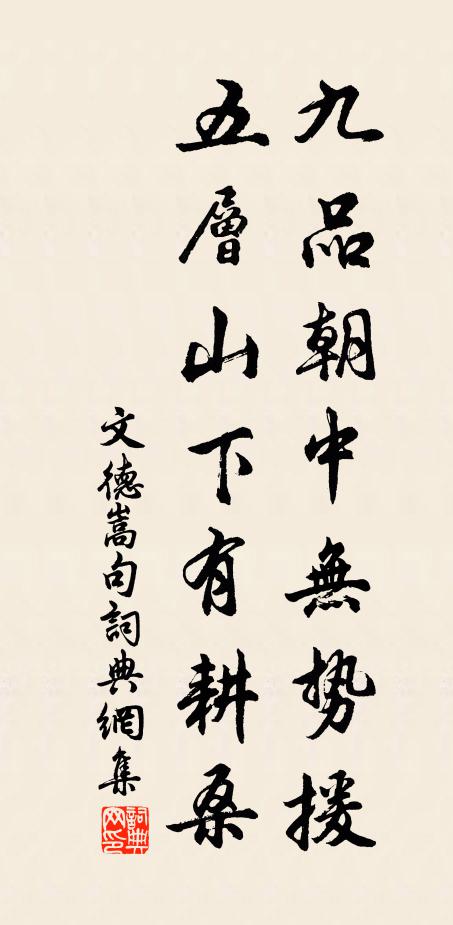 九品朝中無势援
五層山下有耕桑
文德嵩句詞典網集
詞典網印